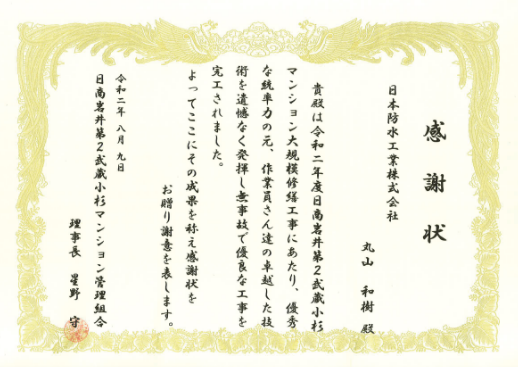 感謝状
日本防水工業株式会社
丸山 和樹 殿
貴殿は令和二年度日商岩井第2武蔵小杉
マンション大規模修繕工事にあたり、優秀
な統率力の元、作業員さん達の卓越した技
術を遺憾なく発揮し無事故で優良な工事を
完工されました。
よってここにその成果を称え感謝状を
お贈り謝意を表します。
令和二年 八月 九日
日商岩井第2武蔵小杉マンション管理組合
理事長 星野 守